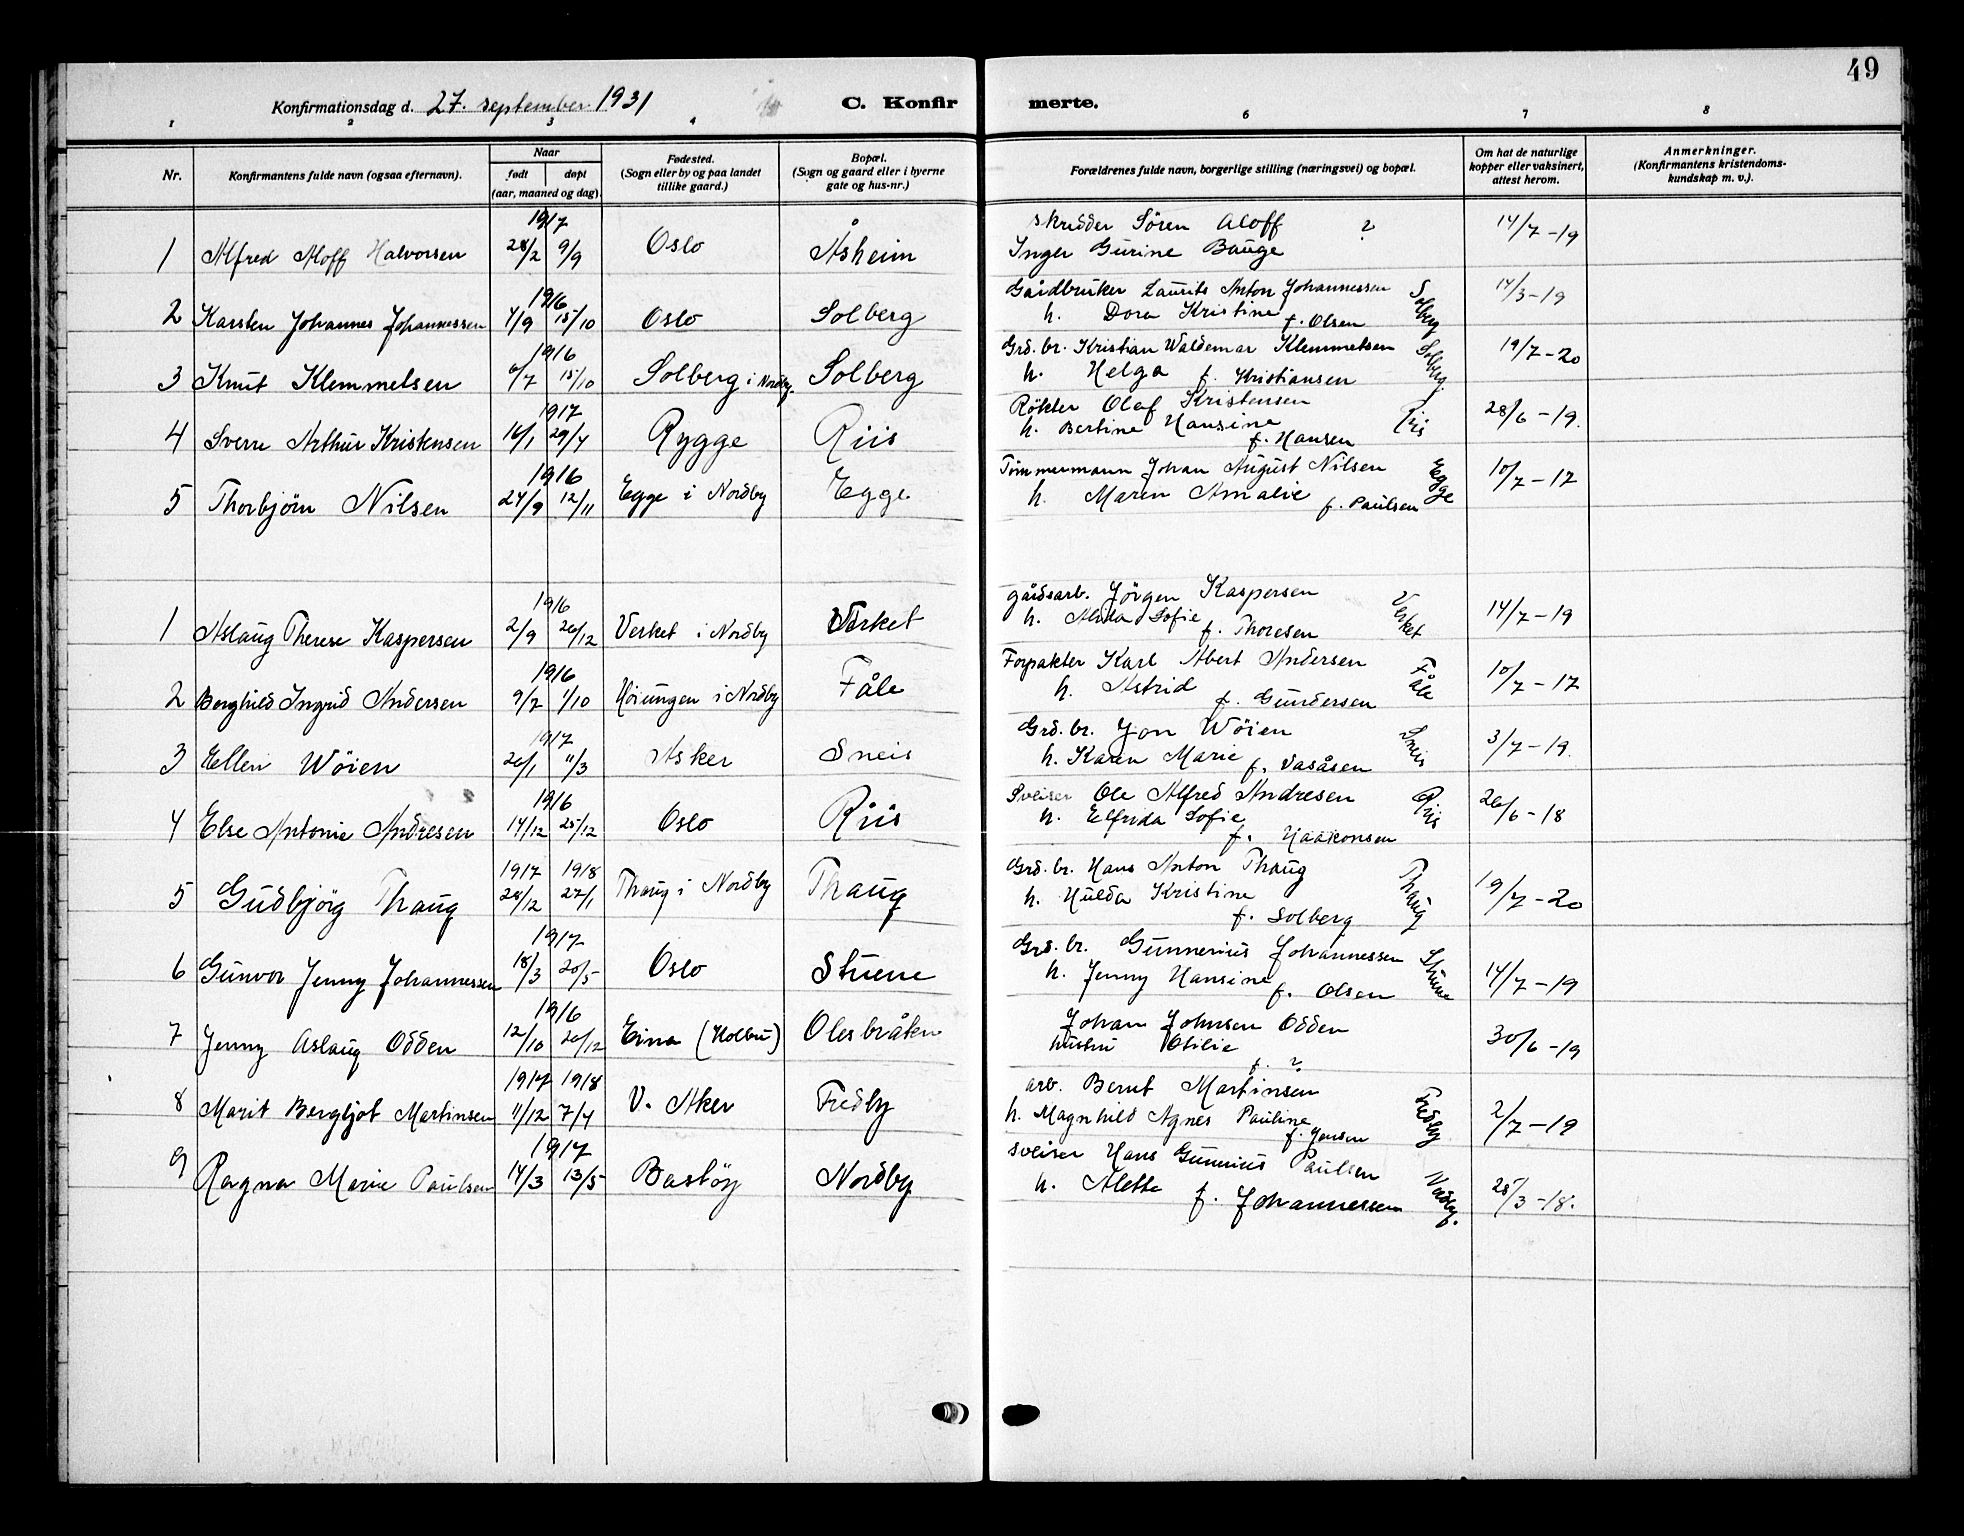 49
Konfirmationsdag d. 27. september 1931 C. Konfirmerte.
1 2 3 4 6 7 8
Nr. Konfirmantens fulde navn (ogsaa efternavn). Naar født døpt (aar, maaned og dag). Fødested. (Sogn eller by og paa landet tillike gaard.) Bopæl. (Sogn og gaard eller i byerne gate og hus-nr.) Forældrenes fulde navn, borgerlige stilling (næringsvei) og bopæl. Om hat de naturlige kopper eller vaksinert, attest herom. Anmerkninger. (Konfirmantens kristendoms-kundskap m. v.).
1917 skrædder Sören Aloff ?
1 Alfred Aloff Halvorsen 28/2 9/9 Oslo Åsheim Inger Gurine Bauge 14/7-19
1916 Gårdbruker Laurits Anton Johannessen Solberg
2 Karsten Johannes Johannessen 4/9 15/10 Oslo Solberg h. Dora Kristine f. Olsen 14/3-19
1916 Grd. br. Kristian Waldemar Klemmetsen Solberg.
3 Knut Klemmelsen 6/7 15/10 Solberg i Nordby. Solberg h. Helga f. Kristiansen 19/7-20
1917 Rökter Olaf Kristensen Riis
4 Sverre Arthur Kristensen 16/1 29/4 Rygge Riis h. Bertine Hansine f. Hansen 28/6-19.
1916 Tömmermann Johan August Nilsen Egge
5 Thorbjörn Nilsen 24/9 12/11 Egge i Nordby Egge h. Maren Amalie f. Paulsen 10/7-17
1916 gårdsarb. Jörgen Kaspersen Verket
1 Aslaug Therese Kaspersen 2/9 26/12 Verket i Nordby Verket h. Alida Sofie f. Thoresen 14/7-19
1916 Forpakter Karl Albert Andersen Fåle
2 Borghild Ingrid Andersen 9/7 1/10 Höiungen i Nordby Fåle h. Astrid f. Gundersen 10/7-17
1917 Grd. br. Jon Wöien Sneis
3 Ellen Wöien 26/1 11/3 Asker Sneis h. Karen Marie f. Vasåsen 3/7-19.
1916 Sveiser Ole Alfred Andresen Riis
4 Else Antonie Andresen 14/12 25/12 Oslo Riis h. Elfrida Sofie f. Haakonsen 26/6-18
1917 1918 Grd. br. Hans Anton Thaug Thaug
5 Gudbjörg Thaug 28/12 27/1 Thaug i Nordby Thaug h. Hulda Kristine f. Solberg 19/7-20
1917 Grd. br. Gunnerius Johannessen Stuene
6 Gunvor Jenny Johannessen 18/3 20/5 Oslo Stuene h. Jenny Hansine f. Olsen 14/7-19
1916 Johan Johnsen Odden
7 Jenny Aslaug Odden 12/10 26/12 Eina (Kolbu) Olesbråten hustru Otilie f. ? 30/6-19
1917 1918 arb. Bernt Martinsen Fredby
8 Marit Bergljot Martinsen 11/12 7/4 V. Aker Fredby h. Magnhild Agnes Pauline f. Jensen 2/7-19
1917 sveiser Hans Gunerius Paulsen Nordby.
9 Ragna Marie Paulsen 14/3 13/5 Bastöy Nordby h. Alette f. Johannessen 25/3-18.